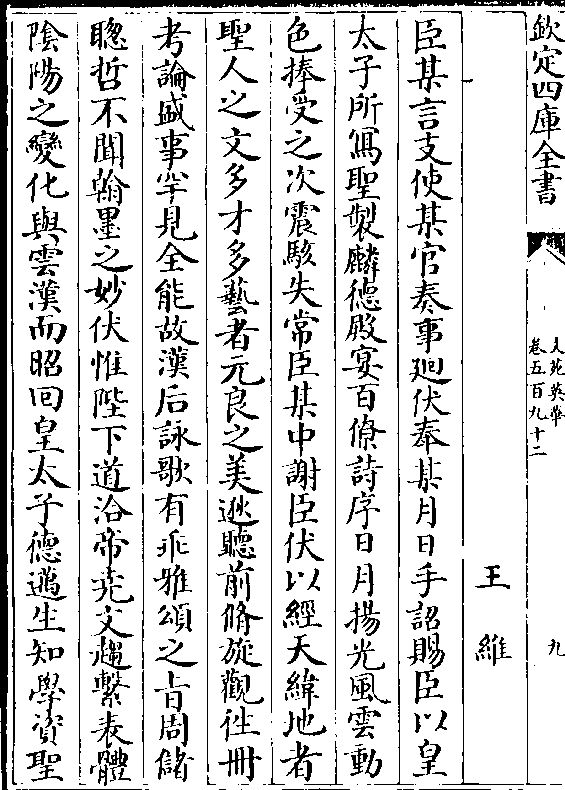 欽定四庫全書
文苑英華
卷五百九十二
九
王維
臣某言支使某官奏事廻伏奉某月日手詔賜臣以皇
太子所寫聖製麟德殿宴百僚詩序日月揚光風雲動
色捧受之次震駭失常臣某中謝臣伏以經天緯地者
聖人之文多才多藝者元良之美逖聽前脩旋觀徃冊
考論盛事罕見全能故漢后詠歌有乖雅頌之旨周儲
聰哲不聞翰墨之妙伏惟陛下道洽帝尭文趨繫表體
陰陽之變化與雲漢而昭回皇太子德邁生知學資聖